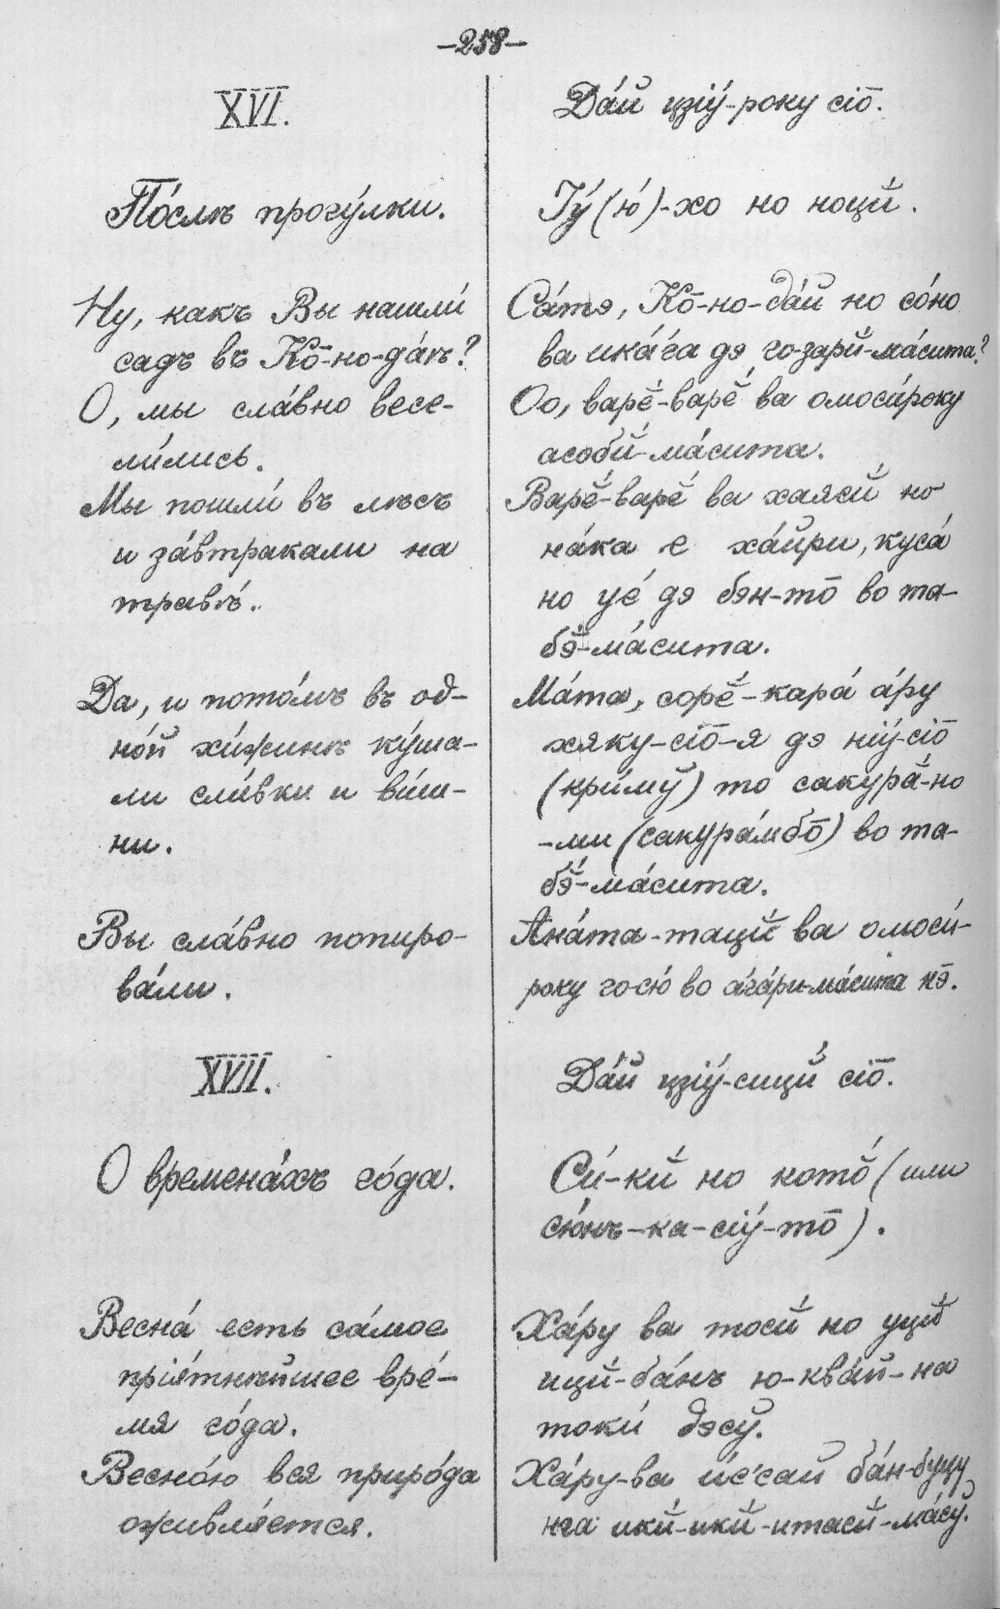 —258—
XVI.
По́слѣ прогу́лки.
Ну, какъ Вы нашли́
садъ въ Ко̄-но-да́ѣ?
О, мы сла́вно весе-
ли́лись.
Мы пошли́ въ лѣсъ
и за́втракали на
травѣ́.
Да, и пото́мъ въ од-
но́й хи́жинѣ ку́ша-
ли сли́вки и ви́ш-
ни.
Вы сла́вно попиро-
ва́ли.
XVII.
О времена́хъ го́да.
Весна́ есть са́мое
прія́тнѣйшее вре́-
мя го́да.
Весно́ю вся приро́да
оживля́ется.
Да́й цзіу́-року сіо̄.
Іу́(ю́)-хо но ноцй́.
Са́тэ, Ко̄-но-да́й но со́но
ва ика́га дэ го-зарй-ма́сита?
Оо, варĕ́-варĕ́ ва омоси́року
асобй́-ма́сита.
Варĕ́-варĕ́ ва хаясй́ но
на́ка е ха́йри, куса́
но уе́ дэ бэн-то̄ во та-
бэ̆́-ма́сита.
Ма́та, сорĕ́-кара́ а́ру
хяку-сіо̄-я дэ ніу́-сіо̄
(кри́мў) то сакурӑ́-но
-ми (сакура́мбо̄) во та-
бэ̆́-ма́сита.
Ана́та-тацй́ ва омоси́-
року го-сю́ во а́га́ри-ма́сита нэ̄.
Да́й цзіу́-сицй́ сіо̄.
Си́-кй но кото̆́ (или
сю́нъ-ка-сіу́-то̄).
Ха́ру ва тосй́ но уцй́
ицй́-ба́нъ ю-ква́й-на
токи́ дэсў.
Ха́ру-ва и́с́сай ба́н-буцу
нга икй́-икй́-итасй́-ма́сў.